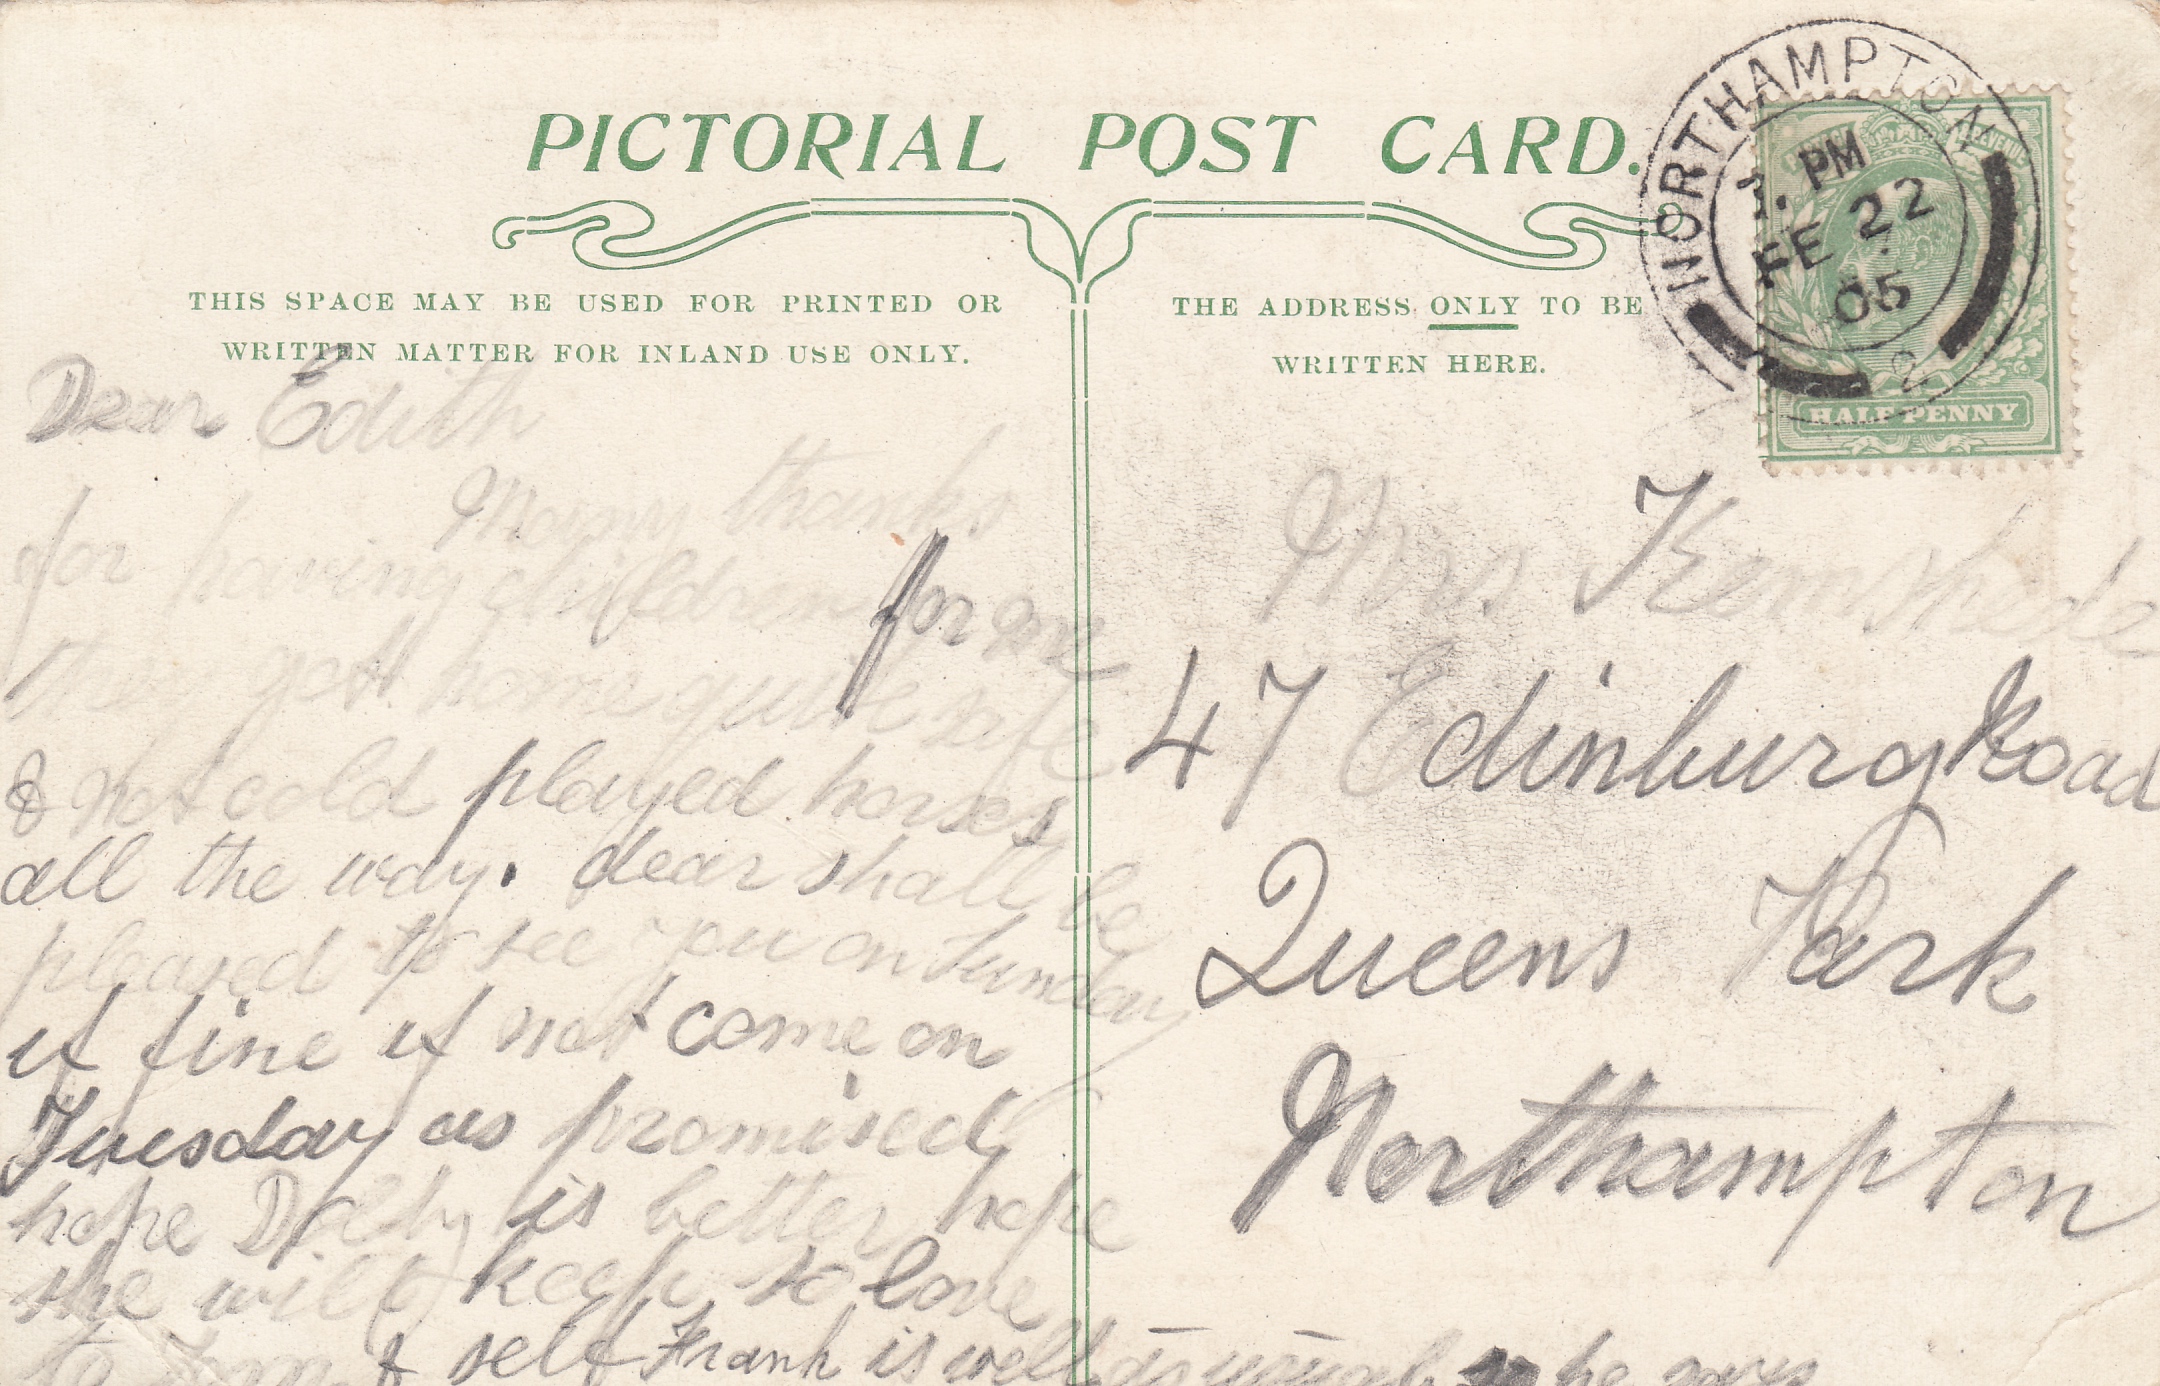 PICTORIAL POST CARD.
THIS SPACE MAY BE USED FOR PRINTED OR
WRITTEN MATTER FOR INLAND USE ONLY.
THE ADDRESS ONLY TO BE
WRITTEN HERE.
NORTHAMPTON
PM
FE 22
05
2
HALFPENNY
Dear Edith
Many thanks
for having children for me
they gott home quite safe
& not cold played horses
all the way. dear shall be
pleased to see you on Sunday
if fine if not come on
Tuesday as promised
hope Dolly is better hope
she will keep so love
to Tom & self Frank is well as usual he says
Mrs Kemshede
47 Edinburg Road
Queens Park
Northampton